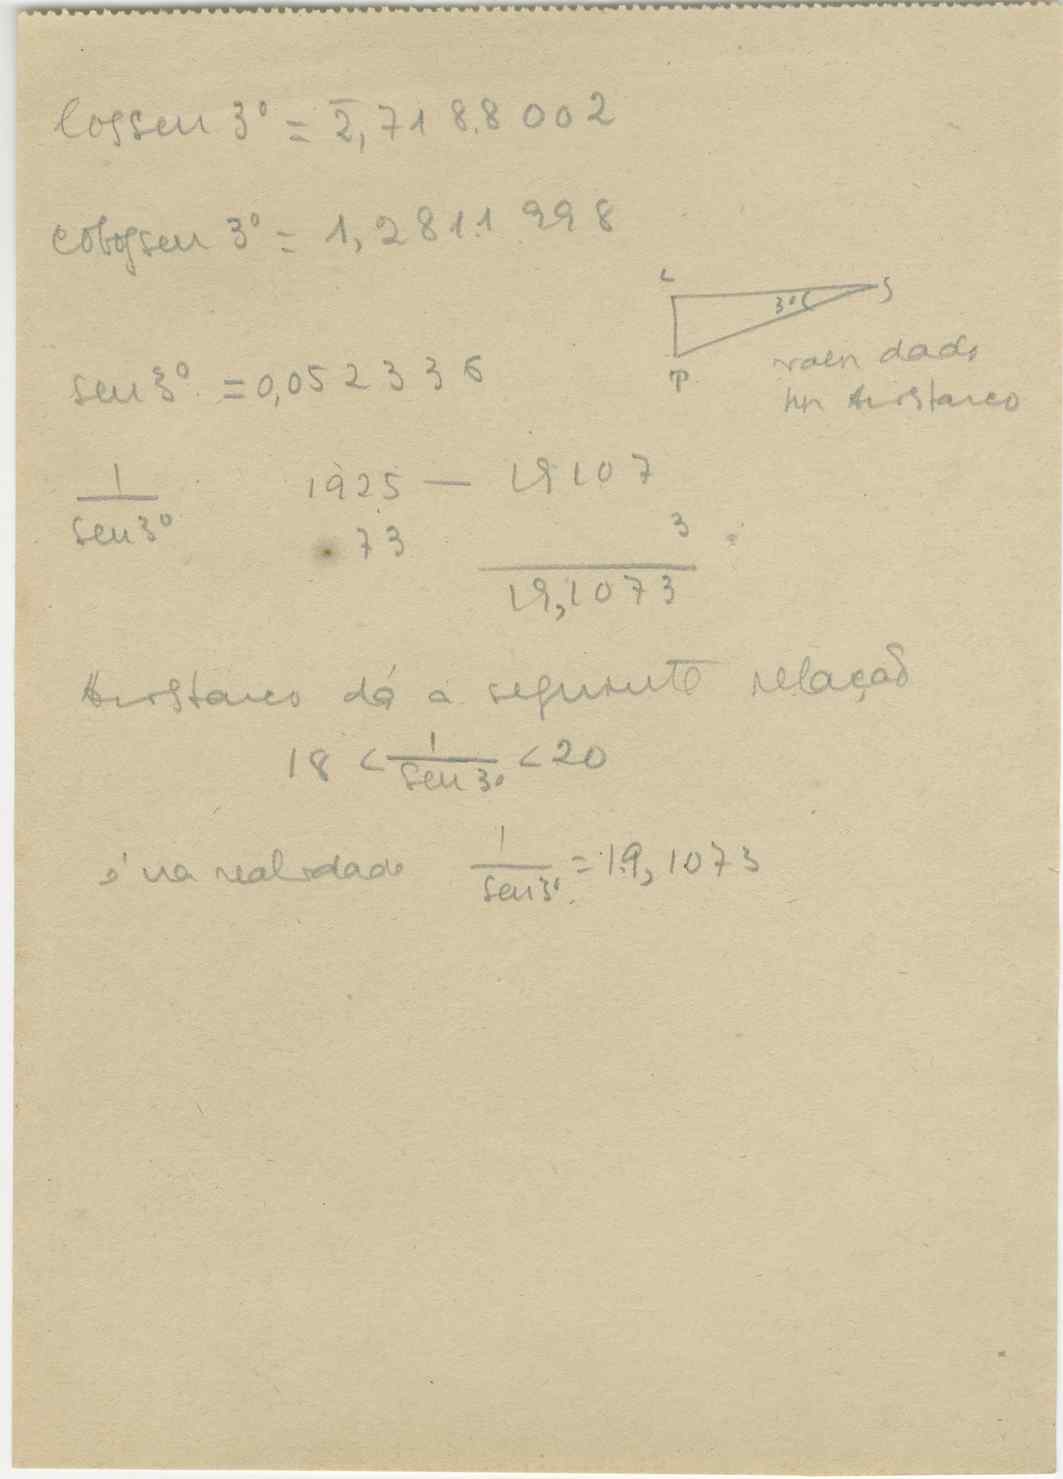 logsen 3° = 2̅,7188002
cologsen 3° = 1,2811998
L S
3°
T
sen 3° = 0,052336
valor dado
por Aristarco
1/sen 3° 1925 — 19107
73 3
19,1073
Aristarco dá a seguinte relação
18 < 1/sen 3° < 20
e na realidade 1/sen 3° = 19,1073